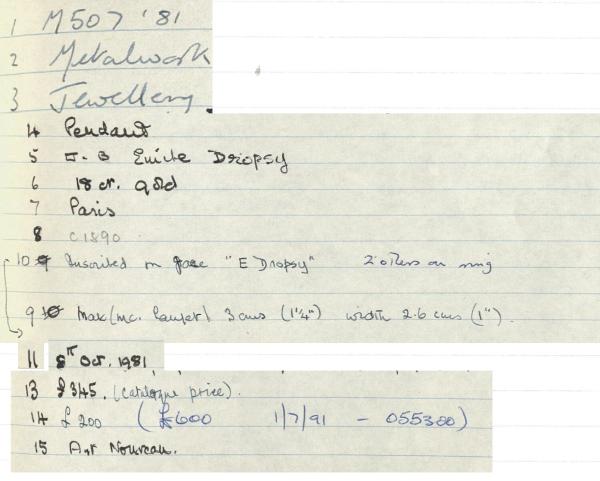 1 M507 '81
2 Metalwork
3 Jewellery.
4 Pendant
5 J-B Emile Dropsy
6 18 ct. gold
7 Paris
8 c1890
10 Inscribed on face "E Dropsy" 2 others on ring
9 Max (inc. ) 3 cms (1¼") width 2.6 cms (1").
11 8th Oct. 1981
13 £345. (catalogue price).
14 £200 (£600 1/7/91 - 055300)
15 Art Nouveau.